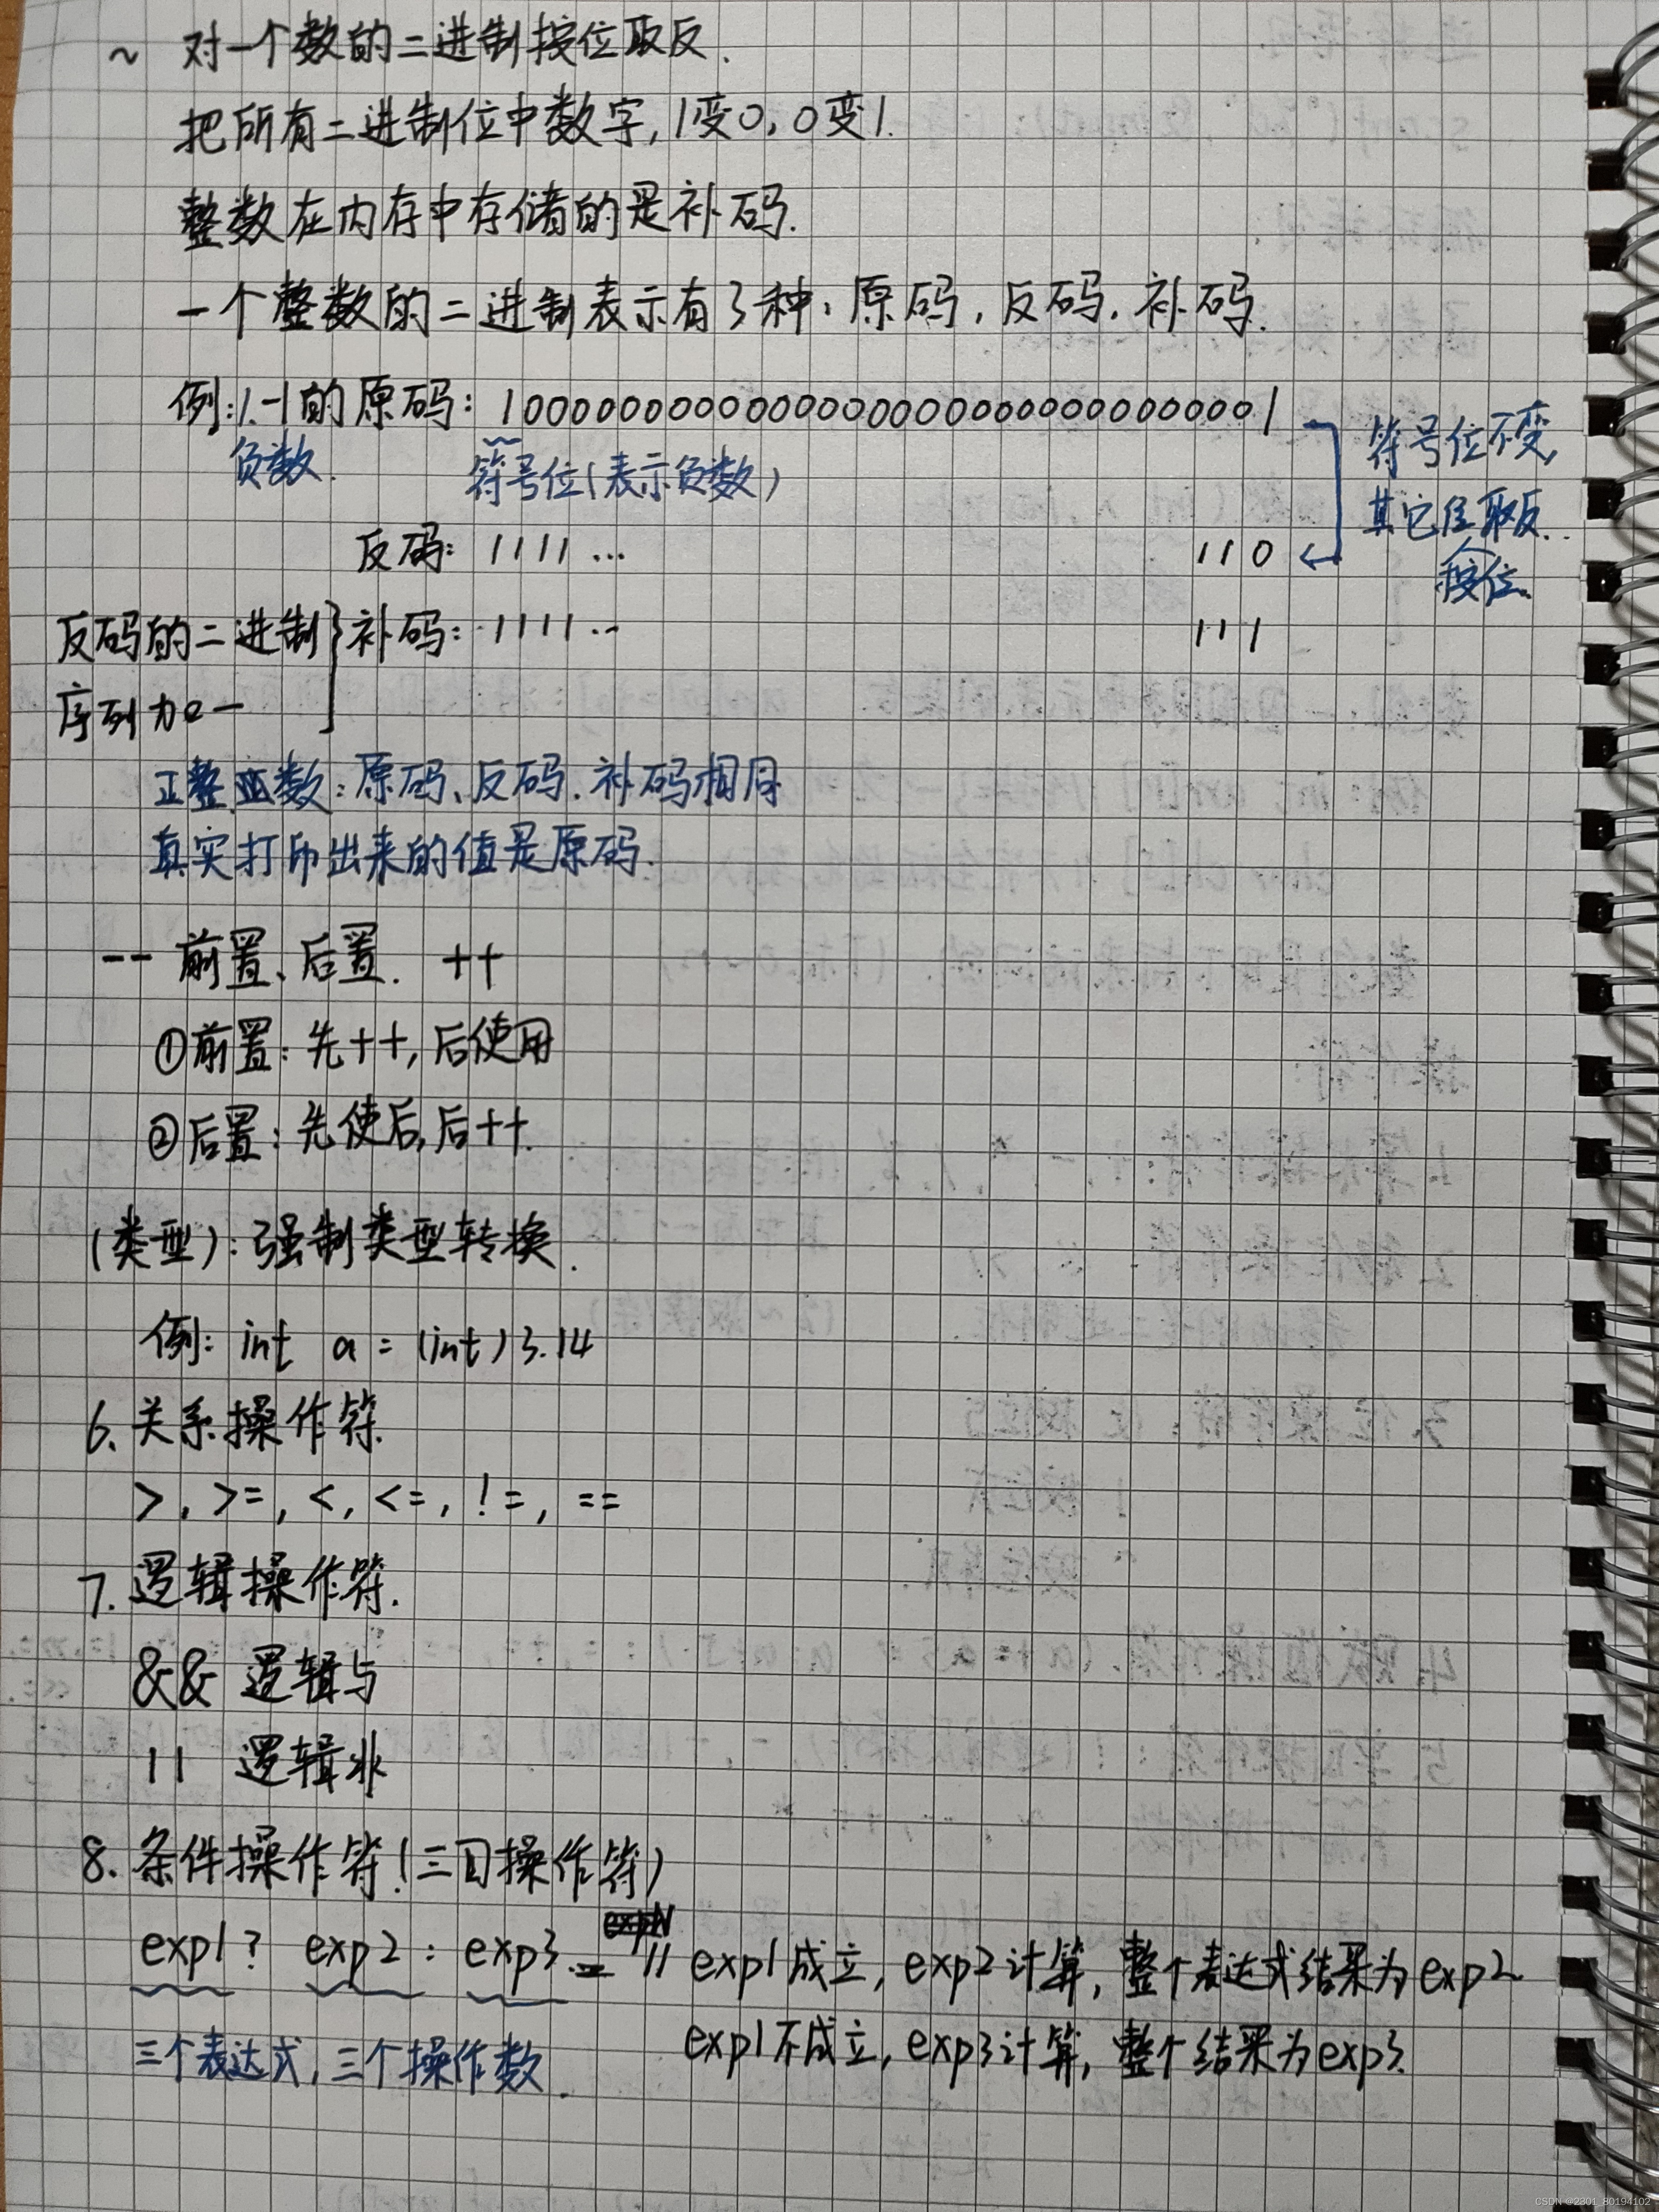 ~ 对一个数的二进制按位取反.
把所有二进制位中数字,1变0,0变1.
整数在内存中存储的是补码.
一个整数的二进制表示有3种:原码,反码,补码.
例:1.-1的原码: 10000000000000000000000000000001
负数. 符号位(表示负数)
符号位不变,
其它位取反..
按位.
反码: 1111 ... 110
反码的二进制 补码: 1111 ... 111
序列加一
正整数:原码、反码.补码相同
真实打印出来的值是原码.
-- 前置、后置. ++
①前置:先++,后使用
②后置:先使后,后++.
(类型):强制类型转换.
例: int a = (int)3.14
6. 关系操作符.
>, >=, <, <=, !=, ==
7. 逻辑操作符.
&& 逻辑与
|| 逻辑非
8. 条件操作符(三目操作符)
exp1? exp2 : exp3. // exp1成立, exp2计算, 整个表达式结果为exp2
exp1不成立, exp3计算, 整个结果为exp3.
三个表达式,三个操作数.
CSDN @2301_80194102